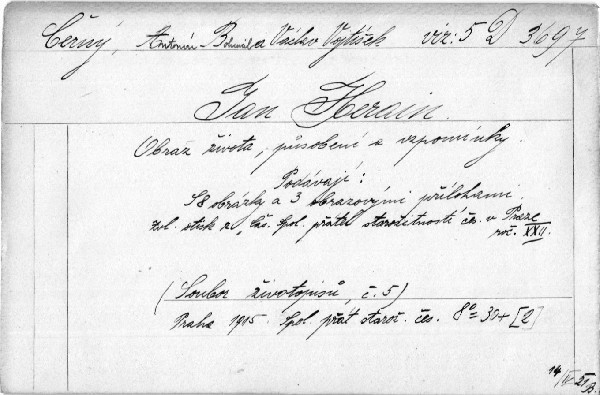 Černý, Antonín Bohumil a Václav Vojtíšek viz: 5 D 3697
Jan Herain.
Obraz života, působení a vzpomínky.
Podávají:
S 8 obrázky a 3 obrazovými přílohami.
zvl. otisk z „Čas. Spol. přátel starožitností čes. v Praze
roč. XXII.
(Soubor životopisů, č. 5)
Praha 1915. Spol. přát. starož. čes. 8° = 39 + [2]
14/